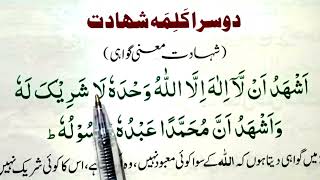 دوسرا کلمہ شہادت
(شہادت معنی گواہی)
اَشْهَدُ اَنْ لَّآ اِلٰهَ اِلَّا اللّٰهُ وَحْدَهٗ لَا شَرِيْكَ لَهٗ
وَاَشْهَدُ اَنَّ مُحَمَّدًا عَبْدُهٗ سُوْلُهٗ ؕ
میں گواہی دیتا ہوں کہ اللہ کے سوا کوئی معبود نہیں، وہ ہے، اس کا کوئی شریک نہیں